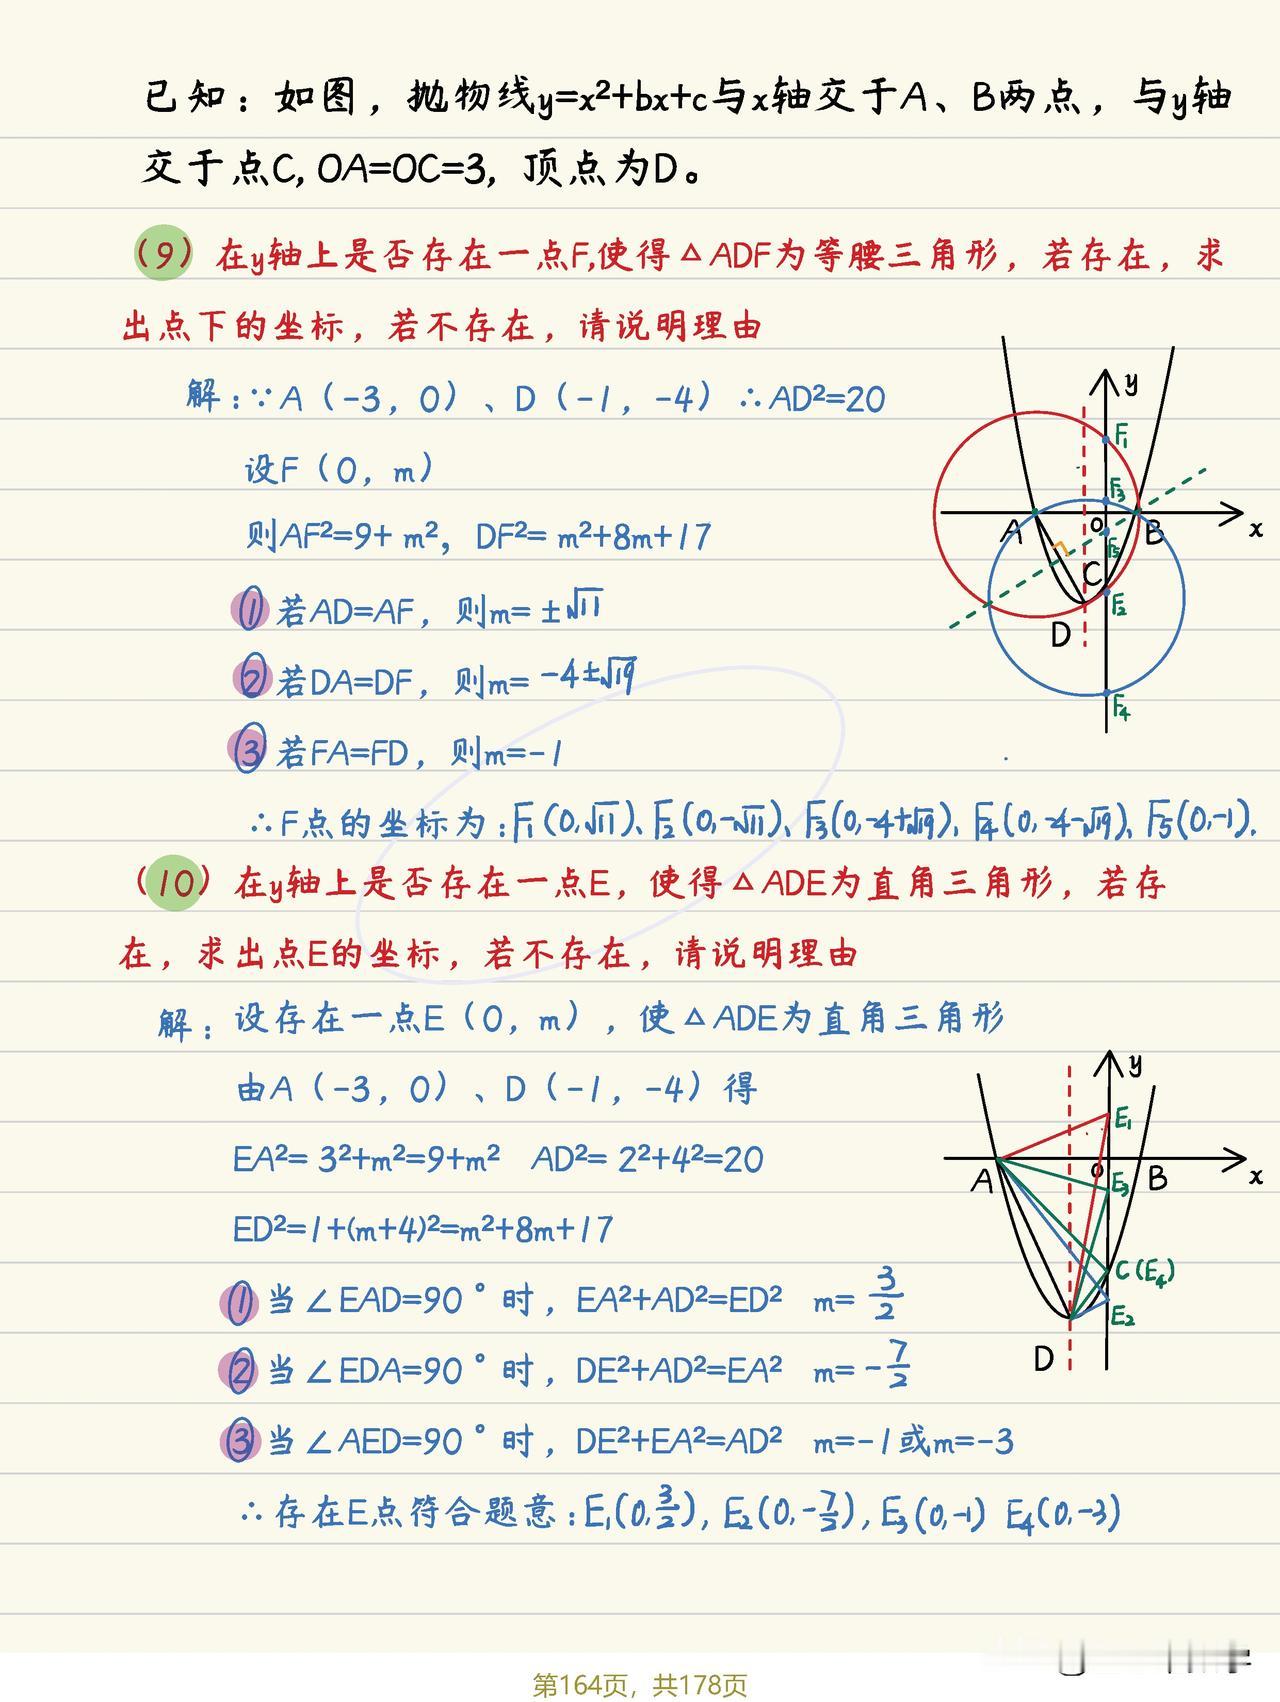 已知：如图，抛物线y=x²+bx+c与x轴交于A、B两点，与y轴
交于点C, OA=OC=3, 顶点为D。
（9）在y轴上是否存在一点F,使得△ADF为等腰三角形，若存在，求
出点下的坐标，若不存在，请说明理由
解：∵A（-3，0）、D（-1，-4）∴AD²=20
设F（0，m）
则AF²=9+ m²，DF²= m²+8m+17
①若AD=AF，则m= ±√11
②若DA=DF，则m= -4±√19
③若FA=FD，则m=-1
∴F点的坐标为：F₁(0,√11)、F₂(0,-√11)、F₃(0,-4+√19)、F₄(0,-4-√19)、F₅(0,-1).
y
F₁
F₃
A
O
B
x
F₅
C
F₂
D
F₄
（10）在y轴上是否存在一点E，使得△ADE为直角三角形，若存
在，求出点E的坐标，若不存在，请说明理由
解：设存在一点E（0，m），使△ADE为直角三角形
由A（-3，0）、D（-1，-4）得
EA²= 3²+m²=9+m² AD²= 2²+4²=20
ED²=1+(m+4)²=m²+8m+17
①当∠EAD=90°时，EA²+AD²=ED² m= 3/2
②当∠EDA=90°时，DE²+AD²=EA² m= -7/2
③当∠AED=90°时，DE²+EA²=AD² m=-1或m=-3
∴存在E点符合题意：E₁(0,3/2), E₂(0,-7/2), E₃(0,-1) E₄(0,-3)
y
E₁
A
O
E₃
B
x
C(E₄)
E₂
D
第164页，共178页